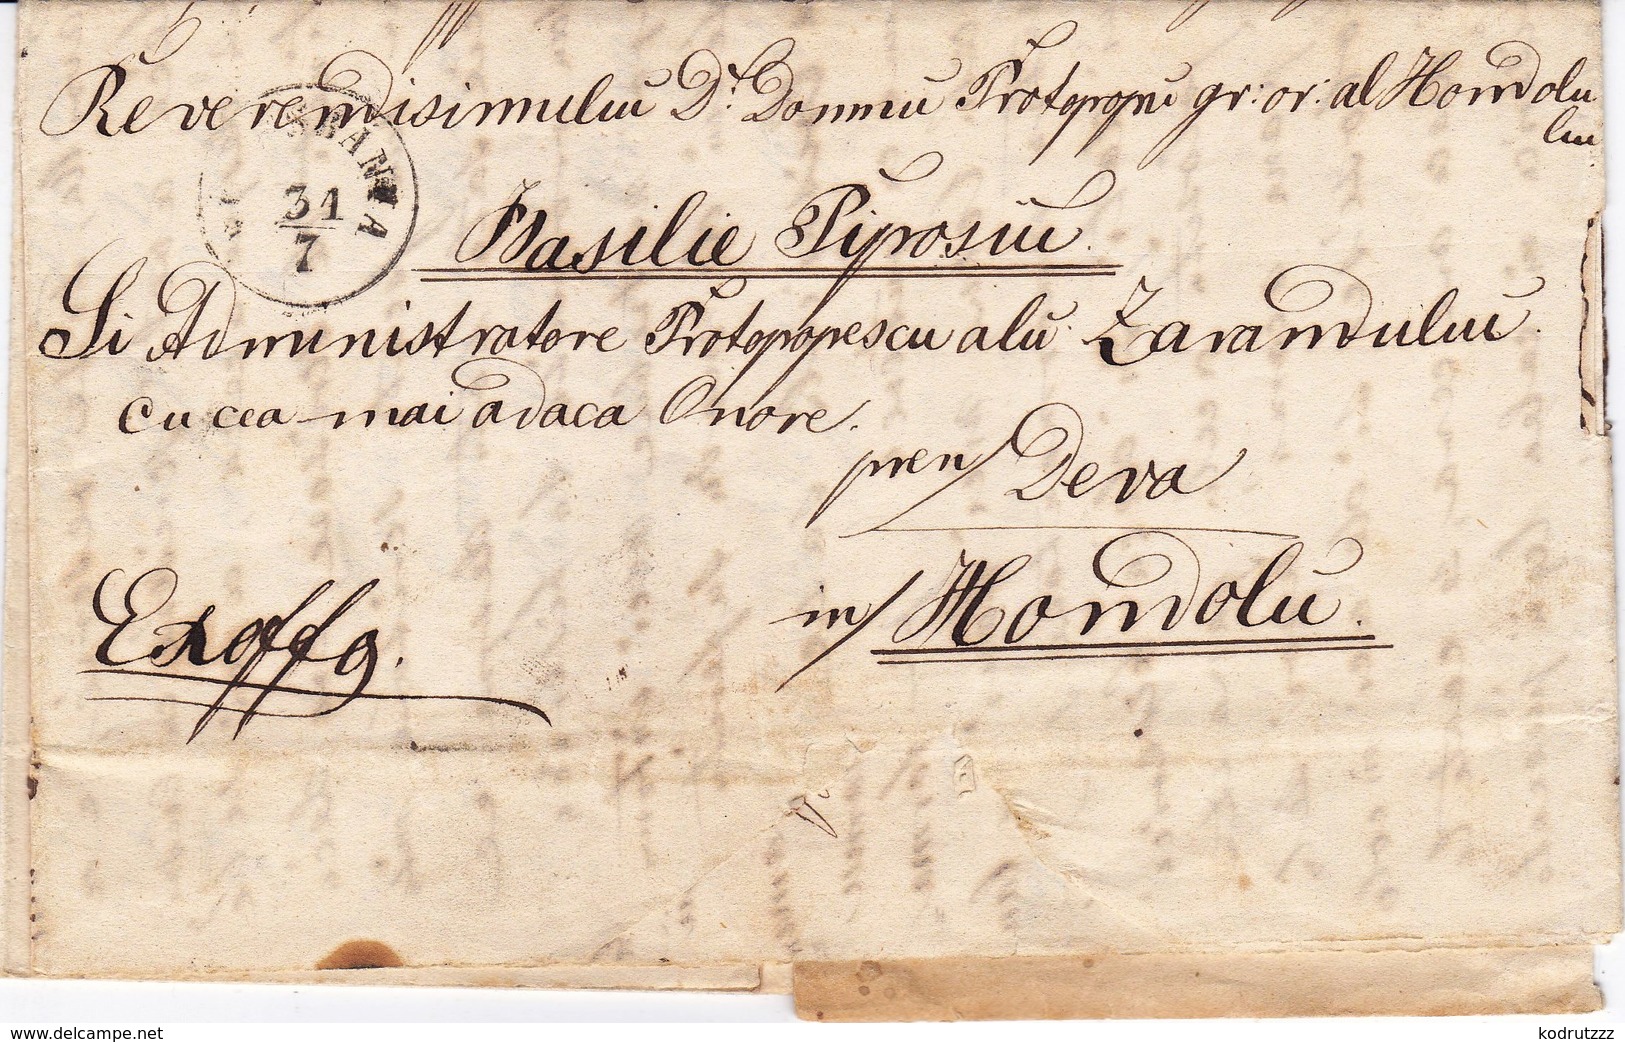 Reverendisimului D. Domnu Protopopu gr: or: al Hondolu
lui
BANYA
31
7
Basilie Piposiu.
Si Administratore Protopopescu alu Zarandului.
Cu cea mai adaca Onore.
pren/ Deva
in/ Hondolu.
Exoffo.
www.delcampe.net
kodrutzzz